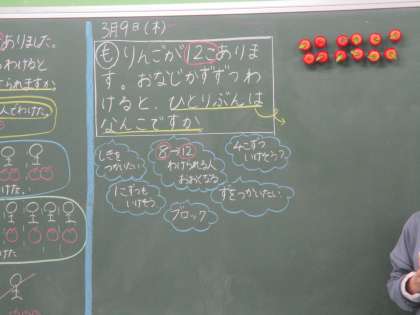 ありました。
わけると
けられますか
人でわけた。
けた。
けた。
3月9日(木)
も りんごが12こありま
す。おなじかずずつわ
けると、ひとりぶんは
なんこですか
しきを
つかいたい
8→12
わけられる人
おおくなる
4こずつ
いけそう?
1こずつも
いけそう
ずをつかいたい
ブロック